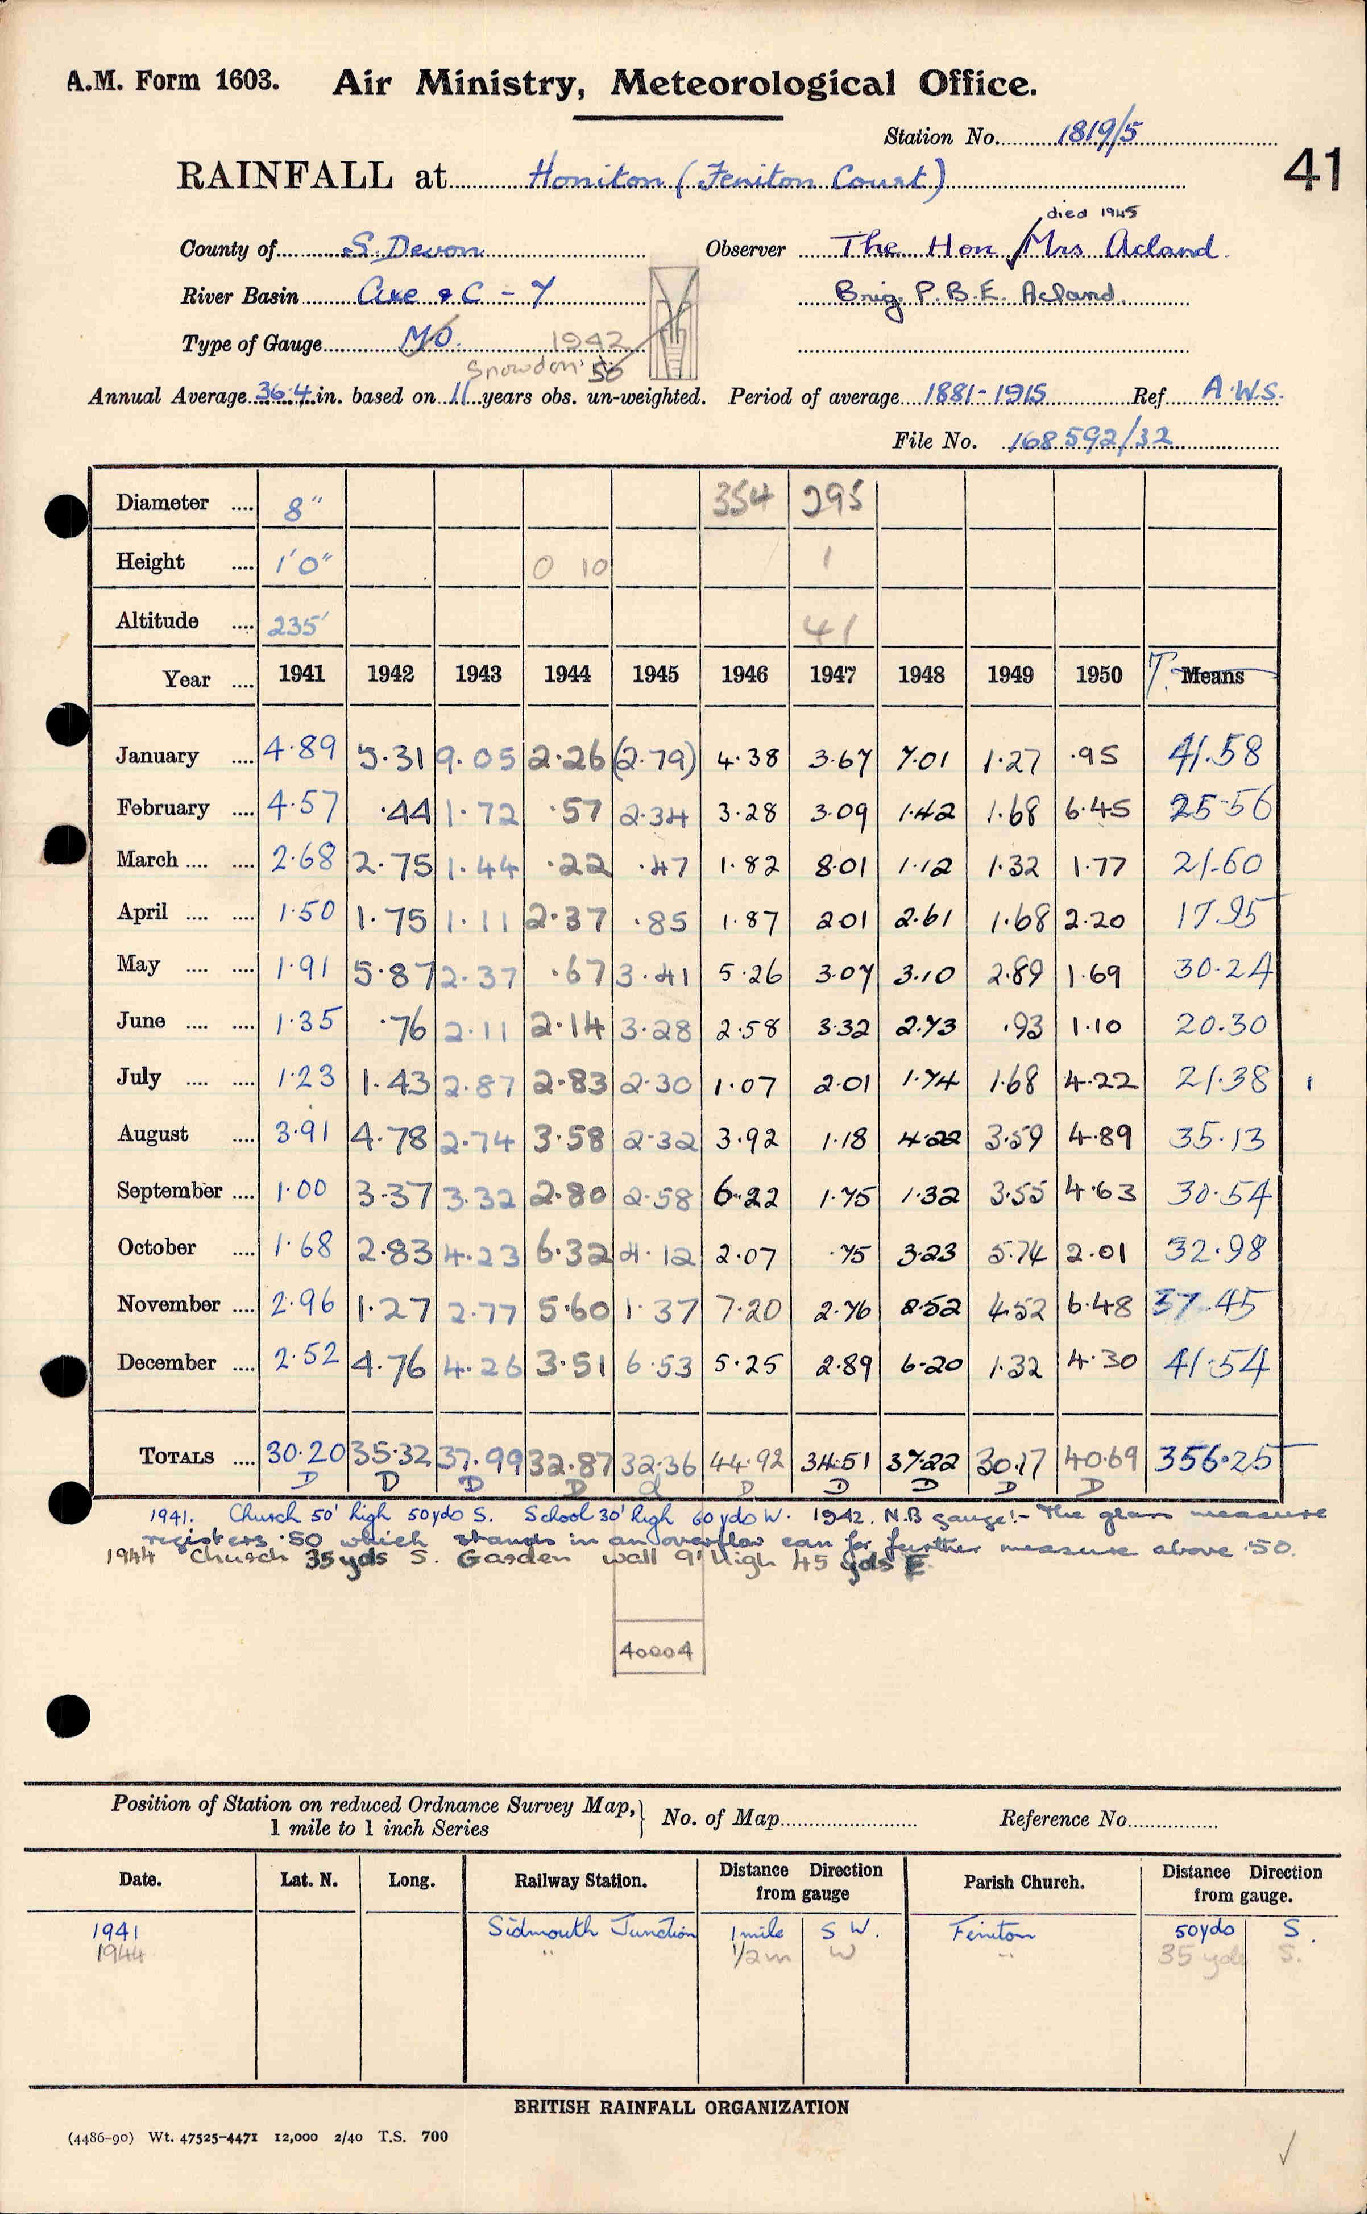 A.M. Form 1603. Air Ministry, Meteorological Office.
Station No. 1819/5
41
RAINFALL at Honiton (Feniton Court)
died 1945
County of S. Devon Observer The Hon Mrs Acland
River Basin Axe & C - 7 Brig. P.B.E. Acland.
Type of Gauge MO. 1942
Snowdon 50
Annual Average 36.4 in. based on 11 years obs. un-weighted. Period of average 1881-1915 Ref A.W.S.
File No. 168592/32
Diameter .... 8" 354 295
Height .... 1'0" 0 10 1
Altitude .... 235' 41
Year .... 1941 1942 1943 1944 1945 1946 1947 1948 1949 1950 T. Means
January .... 4.89 5.31 9.05 2.26 (2.79) 4.38 3.67 7.01 1.27 .95 41.58
February .... 4.57 .44 1.72 .57 2.34 3.28 3.09 1.42 1.68 6.45 25.56
March .... .... 2.68 2.75 1.44 .22 .47 1.82 8.01 1.12 1.32 1.77 21.60
April .... .... 1.50 1.75 1.11 2.37 .85 1.87 2.01 2.61 1.68 2.20 17.95
May .... .... 1.91 5.87 2.37 .67 3.41 5.26 3.07 3.10 2.89 1.69 30.24
June .... .... 1.35 .76 2.11 2.14 3.28 2.58 3.32 2.73 .93 1.10 20.30
July .... .... 1.23 1.43 2.87 2.83 2.30 1.07 2.01 1.74 1.68 4.22 21.38
August .... 3.91 4.78 2.74 3.58 2.32 3.92 1.18 4.22 3.59 4.89 35.13
September .... 1.00 3.37 3.32 2.80 2.58 6.22 1.75 1.32 3.55 4.63 30.54
October .... 1.68 2.83 4.23 6.32 4.12 2.07 .75 3.23 5.74 2.01 32.98
November .... 2.96 1.27 2.77 5.60 1.37 7.20 2.76 2.52 4.52 6.48 37.45
December .... 2.52 4.76 4.26 3.51 6.53 5.25 2.89 6.20 1.32 4.30 41.54
TOTALS .... 30.20 35.32 37.99 32.87 32.36 44.92 34.51 37.22 30.17 40.69 356.25
D D D D d D D D D D
1941. Church 50' high 50yds S. School 30' high 60yds W. 1942. N.B gauge!- The glass measure
registers .50 which stands in an overflow can for further measure above .50.
1944 Church 35yds S. Garden wall 9' High 45 yds E
40004
Position of Station on reduced Ordnance Survey Map, No. of Map Reference No.
1 mile to 1 inch Series
Date. Lat. N. Long. Railway Station. Distance Direction from gauge Parish Church. Distance Direction from gauge.
1941 Sidmouth Junction 1mile S W. Feniton 50yds S.
1944 " 1/2m W " 35 yds S.
BRITISH RAINFALL ORGANIZATION
(4486-90) Wt. 47525-4471 12,000 2/40 T.S. 700